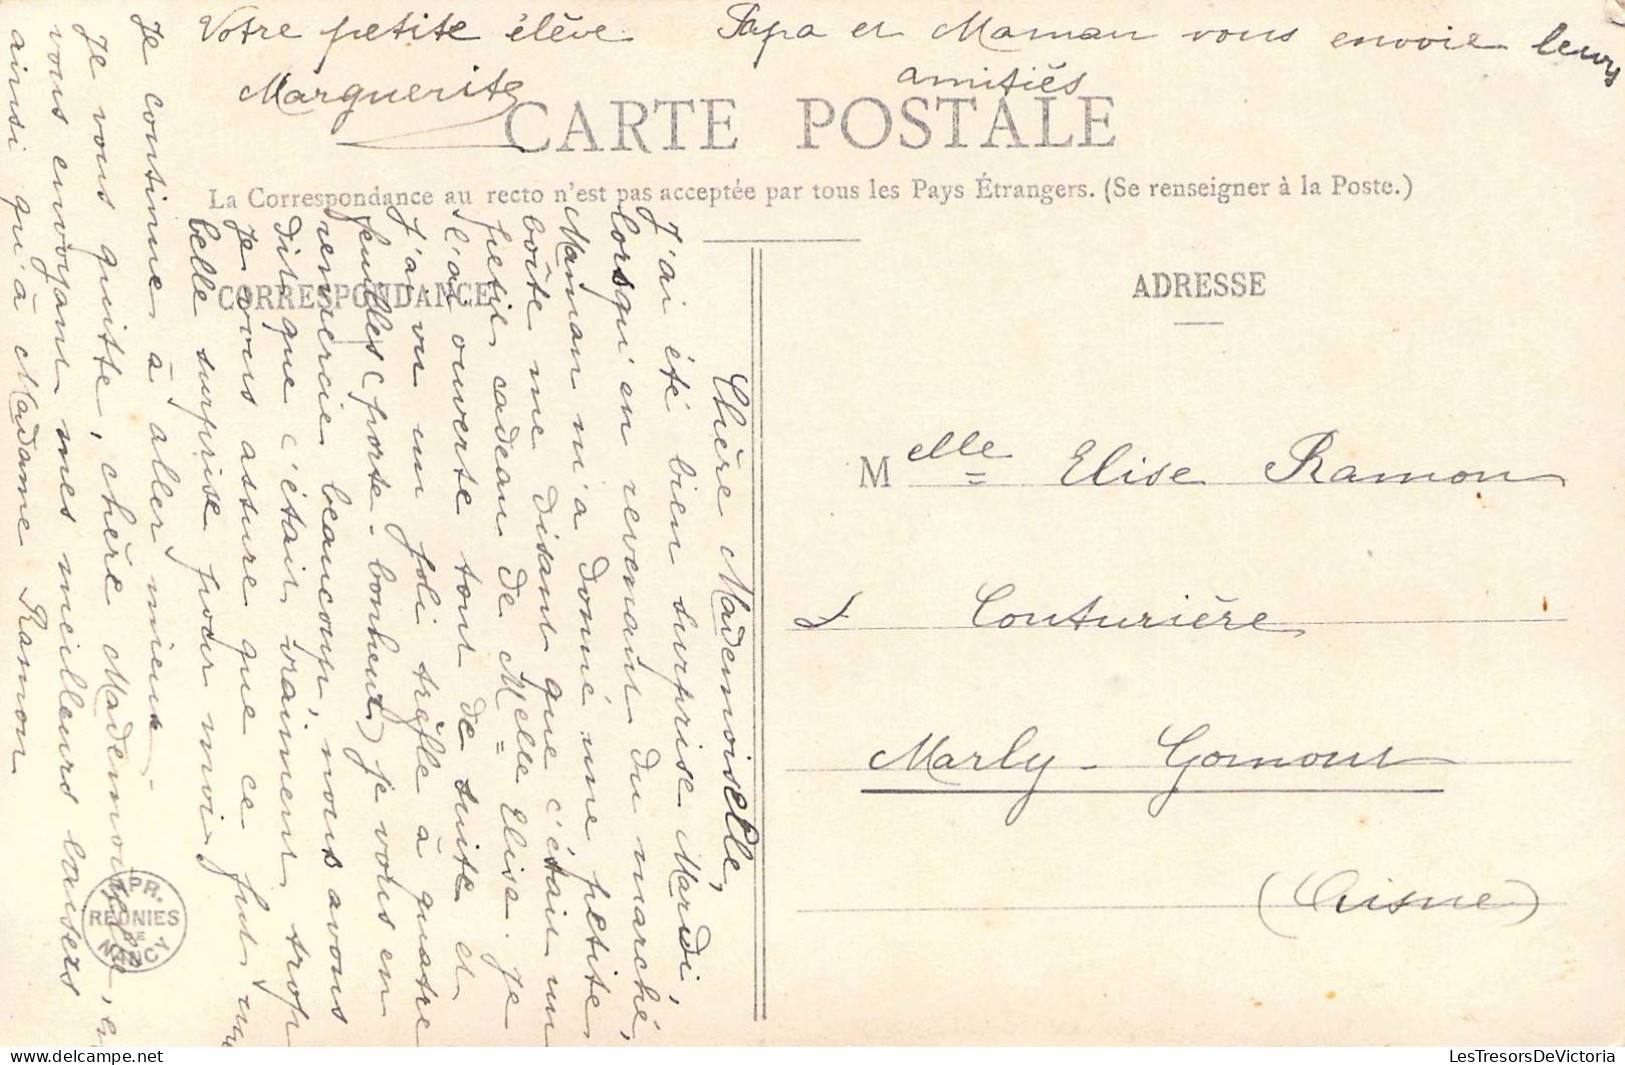 CARTE POSTALE
La Correspondance au recto n'est pas acceptée par tous les Pays Étrangers. (Se renseigner à la Poste.)
CORRESPONDANCE
Chère Mademoiselle,
J'ai été bien surprise Mardi,
lorsqu'en revenant du marché,
Maman m'a donné une petite
boîte me disant que c'étair un
petit cadeau de Melle Elise. Je
l'ai ouverte tout de suite et
j'ai vu un joli trèfle à quatre
feuilles (porte-bonheur) je vous en
remercie beaucoup, nous avons
dit que c'était vraiment trop
Je vous assure que ce fut une
belle surprise pour moi
Je continue à aller mieux.
Je vous quitte, chère Mademoiselle, en
vous envoyant mes meilleurs baisers
ainsi qu'à Madame Ramon
Votre petite élève
Marguerite
Papa et Maman vous envoie leurs
amitiés
ADRESSE
Melle Elise Ramon
Couturière
Marly-Gomont
(Aisne)
IMPR.
RÉUNIES
DE
NANCY
LesTresorsDeVictoria